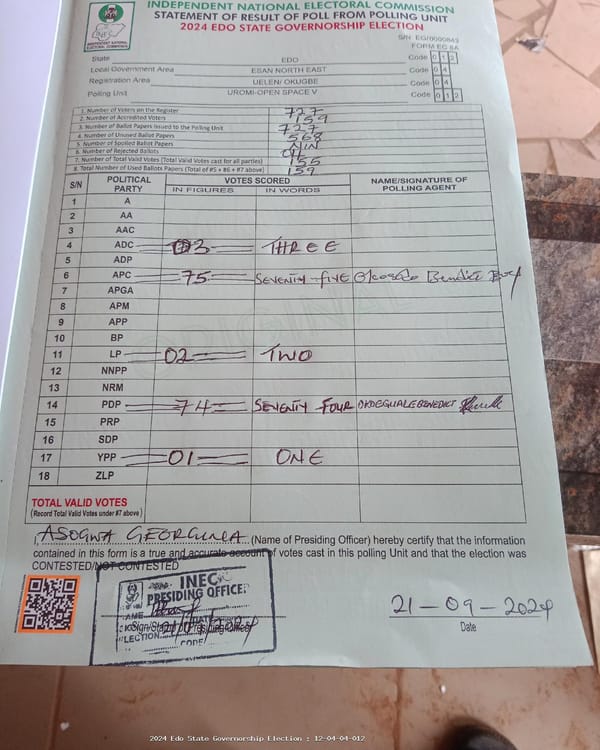 INDEPENDENT NATIONAL ELECTORAL COMMISSION
STATEMENT OF RESULT OF POLL FROM POLLING UNIT
2024 EDO STATE GOVERNORSHIP ELECTION
INDEPENDENT NATIONAL ELECTORAL COMMISSION
S/N EG/0000843
FORM EC 8A
State EDO Code 0 1 2
Local Government Area ESAN NORTH EAST Code 0 4
Registration Area UELEN/ OKUGBE Code 0 4
Polling Unit UROMI-OPEN SPACE V Code 0 1 2
1. Number of Voters on the Register 727
2. Number of Accredited Voters 159
3. Number of Ballot Papers Issued to the Polling Unit 727
4. Number of Unused Ballot Papers 568
5. Number of Spoiled Ballot Papers
6. Number of Rejected Ballots
7. Number of Total Valid Votes (Total Valid Votes cast for all parties) 155
8. Total Number of Used Ballots Papers (Total of #5 + #6 + #7 above) 159
S/N POLITICAL PARTY VOTES SCORED NAME/SIGNATURE OF POLLING AGENT
IN FIGURES IN WORDS
1 A
2 AA
3 AAC
4 ADC 03 THREE
5 ADP
6 APC 75 SEVENTY FIVE Benedict
7 APGA
8 APM
9 APP
10 BP
11 LP 02 TWO
12 NNPP
13 NRM
14 PDP 74 SEVENTY FOUR BENEDICT
15 PRP
16 SDP
17 YPP 01 ONE
18 ZLP
TOTAL VALID VOTES
(Record Total Valid Votes under #7 above)
ASOGWA GEORGINIA (Name of Presiding Officer) hereby certify that the information
contained in this form is a true and accurate account of votes cast in this polling Unit and that the election was
CONTESTED/NOT CONTESTED
INEC
PRESIDING OFFICER
Sign/Stamp of Presiding Officer
CODE
21-09-2024
Date
2024 Edo State Governorship Election : 12-04-04-012